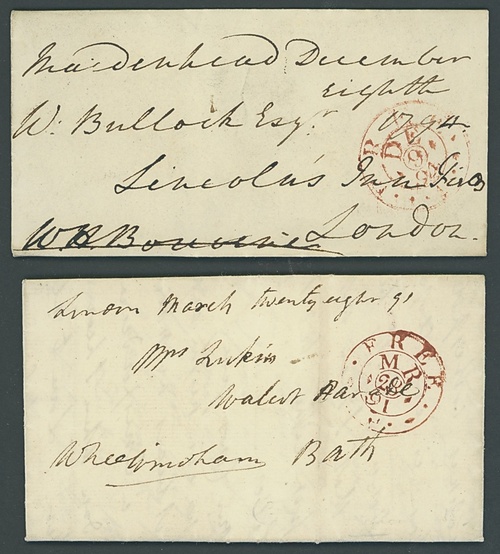 Maidenhead December
Eighth
W. Bullock Esqr. 1794.
Lincoln's Inn
London.
DE
9
94
London March twenty eight 91
Mrs Lukin
Walcot
Bath
FREE
MR
28
91